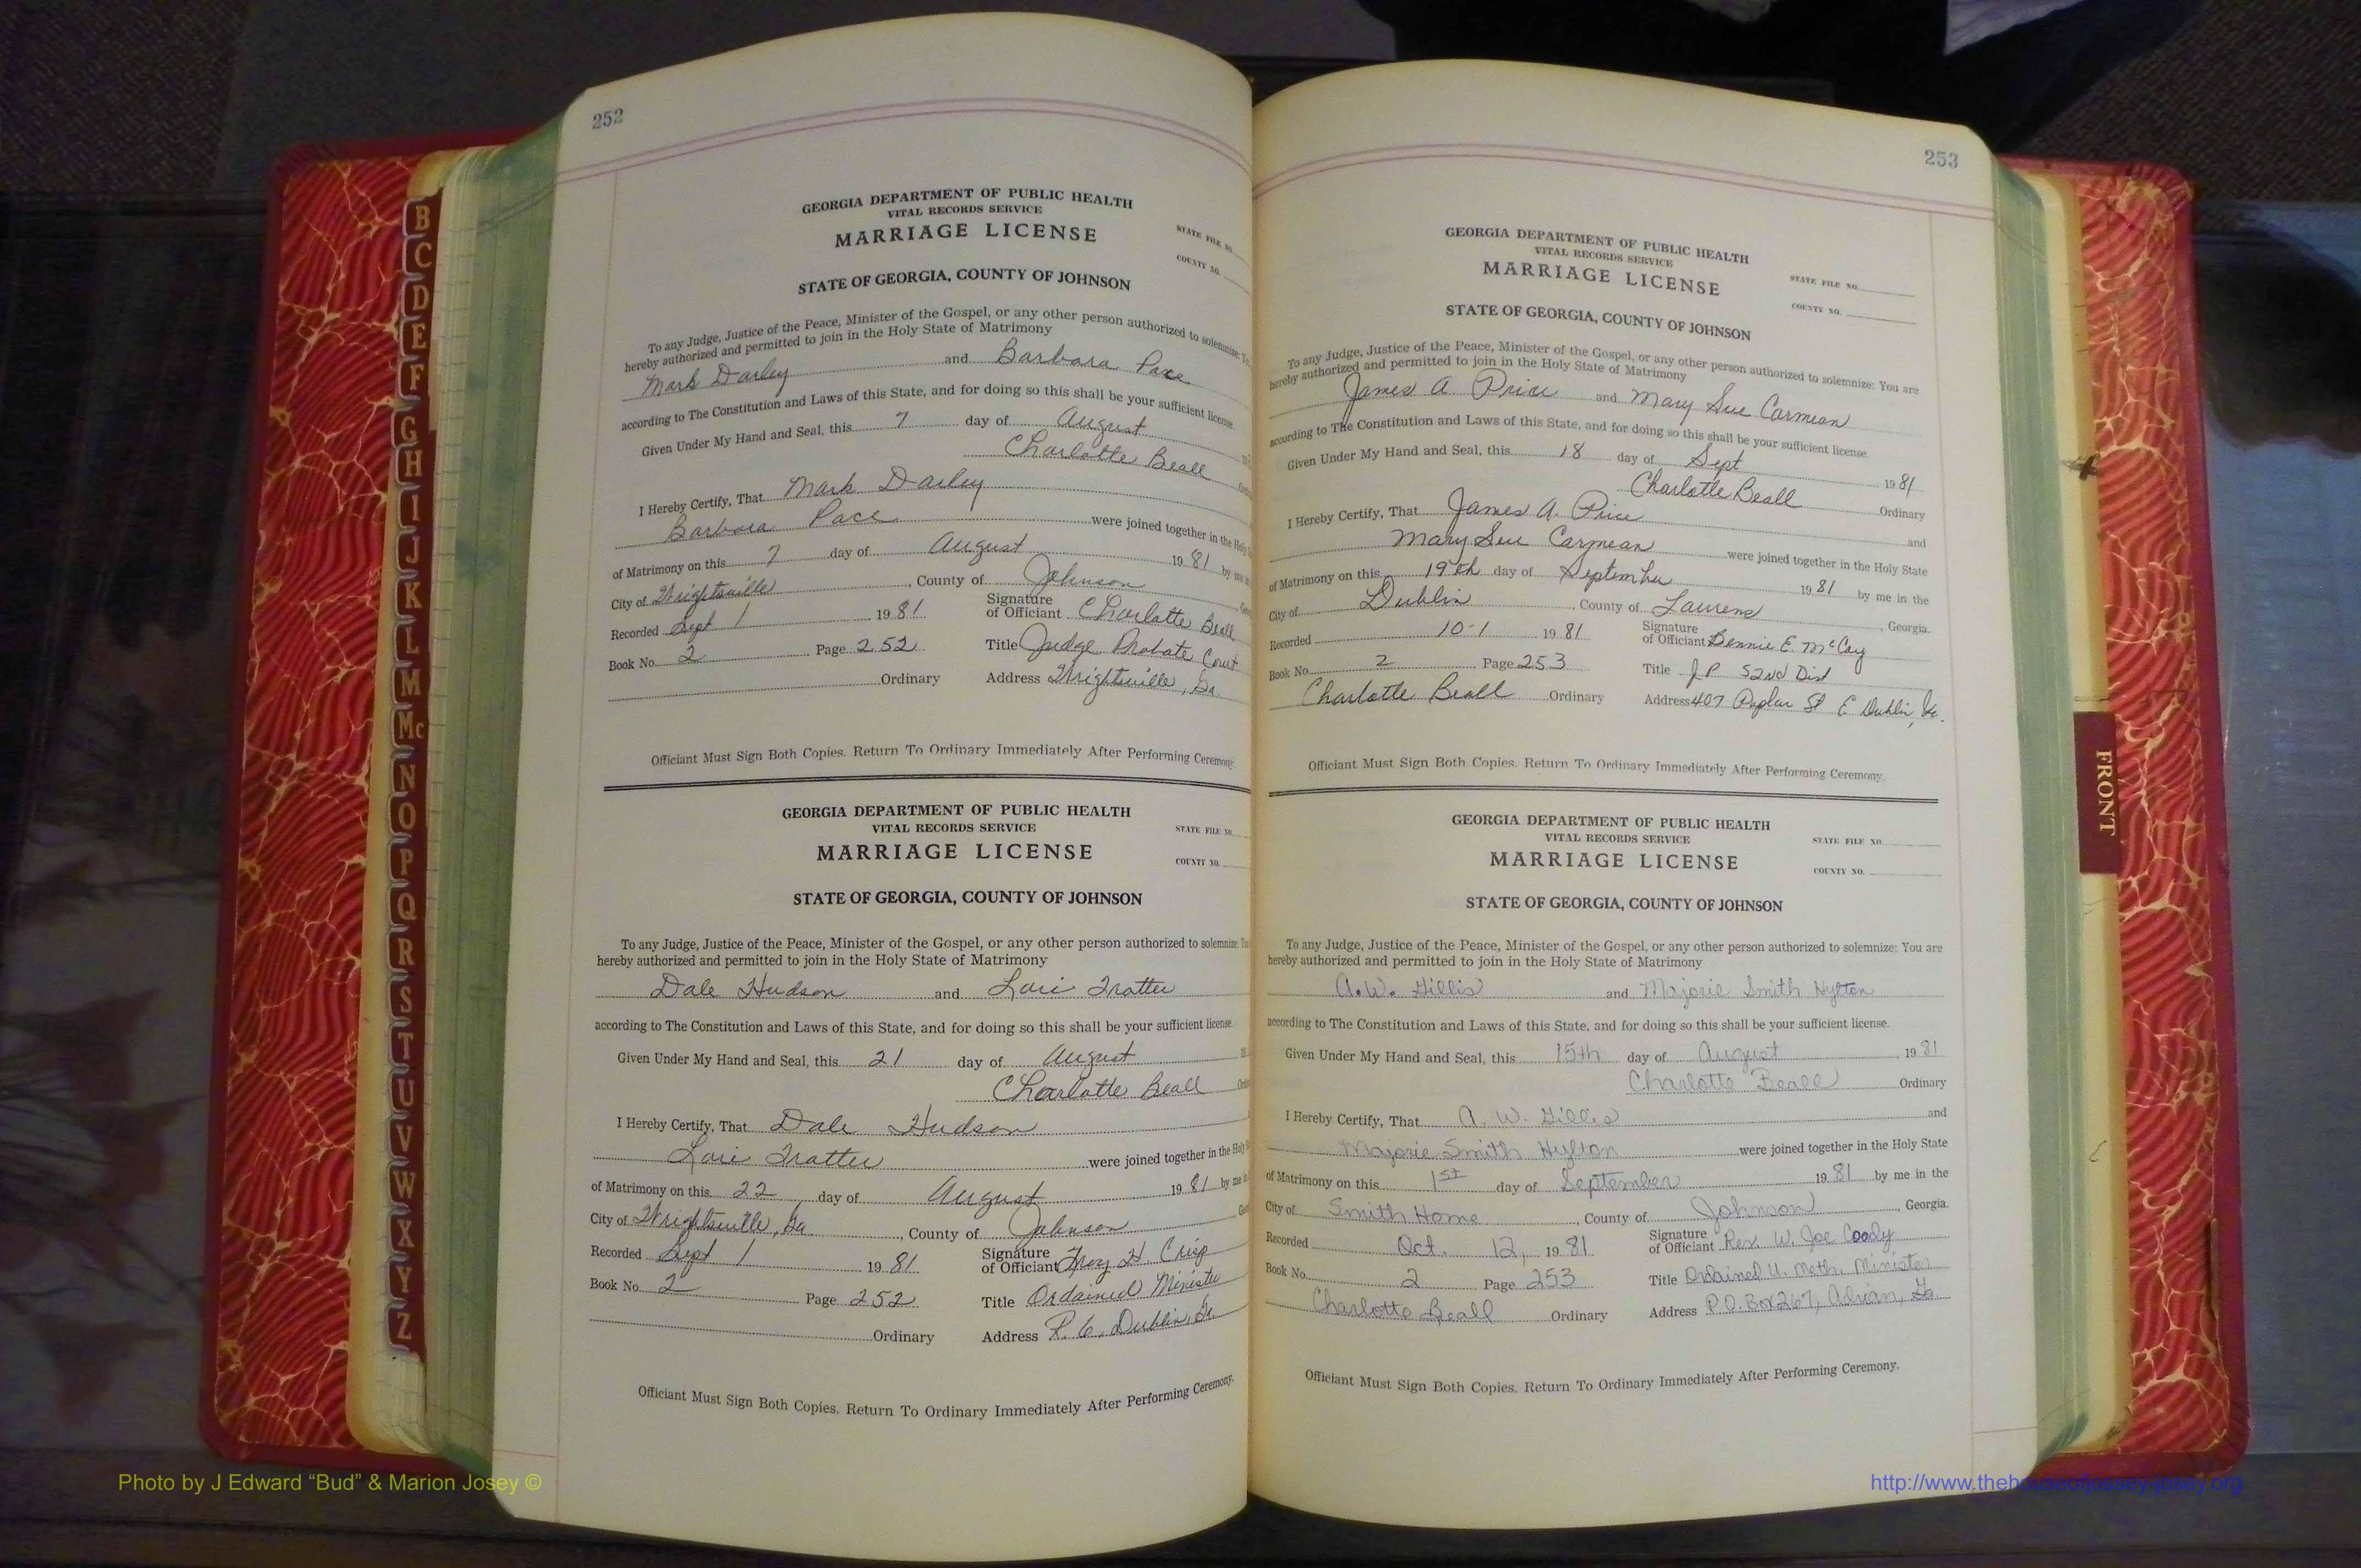 252
GEORGIA DEPARTMENT OF PUBLIC HEALTH
VITAL RECORDS SERVICE
MARRIAGE LICENSE
STATE FILE NO.
COUNTY NO.
STATE OF GEORGIA, COUNTY OF JOHNSON
To any Judge, Justice of the Peace, Minister of the Gospel, or any other person authorized to solemnize:
hereby authorized and permitted to join in the Holy State of Matrimony
Mark Darley and Barbara Pace
according to The Constitution and Laws of this State, and for doing so this shall be your sufficient license.
Given Under My Hand and Seal, this 7 day of August
Charlotte Beall
I Hereby Certify, That Mark Darley
Barbara Pace were joined together in the Holy
of Matrimony on this 7 day of August 1981 by me in
City of Wrightsville, County of Johnson
Recorded Sept 1 1981 Signature of Officiant Charlotte Beall
Book No. 2 Page 252 Title Judge Probate Court
Ordinary Address Wrightsville, Ga.
Officiant Must Sign Both Copies. Return To Ordinary Immediately After Performing Ceremony.
GEORGIA DEPARTMENT OF PUBLIC HEALTH
VITAL RECORDS SERVICE
MARRIAGE LICENSE
STATE FILE NO.
COUNTY NO.
STATE OF GEORGIA, COUNTY OF JOHNSON
To any Judge, Justice of the Peace, Minister of the Gospel, or any other person authorized to solemnize:
hereby authorized and permitted to join in the Holy State of Matrimony
Dale Hudson and Lori Tratter
according to The Constitution and Laws of this State, and for doing so this shall be your sufficient license.
Given Under My Hand and Seal, this 21 day of August
Charlotte Beall
I Hereby Certify, That Dale Hudson
Lori Tratter were joined together in the Holy
of Matrimony on this 22 day of August 1981 by me
City of Wrightsville, Ga, County of Johnson
Recorded Sept 1 1981 Signature of Officiant Troy H. Crisp
Book No. 2 Page 252 Title Ordained Minister
Ordinary Address R. 6, Dublin, Ga.
Officiant Must Sign Both Copies. Return To Ordinary Immediately After Performing Ceremony.
253
GEORGIA DEPARTMENT OF PUBLIC HEALTH
VITAL RECORDS SERVICE
MARRIAGE LICENSE
STATE FILE NO.
COUNTY NO.
STATE OF GEORGIA, COUNTY OF JOHNSON
To any Judge, Justice of the Peace, Minister of the Gospel, or any other person authorized to solemnize: You are
hereby authorized and permitted to join in the Holy State of Matrimony
James A Price and Mary Sue Carmean
according to The Constitution and Laws of this State, and for doing so this shall be your sufficient license.
Given Under My Hand and Seal, this 18 day of Sept 1981
Charlotte Beall Ordinary
I Hereby Certify, That James A. Price and
Mary Sue Carmean were joined together in the Holy State
of Matrimony on this 19th day of September 1981 by me in the
City of Dublin, County of Laurens, Georgia.
Recorded 10-1 1981 Signature of Officiant Bennie E. McCoy
Book No. 2 Page 253 Title J P 52nd Dist
Charlotte Beall Ordinary Address 407 Poplar St E Dublin, Ga.
Officiant Must Sign Both Copies. Return To Ordinary Immediately After Performing Ceremony.
GEORGIA DEPARTMENT OF PUBLIC HEALTH
VITAL RECORDS SERVICE
MARRIAGE LICENSE
STATE FILE NO.
COUNTY NO.
STATE OF GEORGIA, COUNTY OF JOHNSON
To any Judge, Justice of the Peace, Minister of the Gospel, or any other person authorized to solemnize: You are
hereby authorized and permitted to join in the Holy State of Matrimony
A.W. Gillis and Majorie Smith Hylton
according to The Constitution and Laws of this State, and for doing so this shall be your sufficient license.
Given Under My Hand and Seal, this 15th day of August 1981
Charlotte Beall Ordinary
I Hereby Certify, That A. W. Gillis and
Majorie Smith Hylton were joined together in the Holy State
of Matrimony on this 1st day of September 1981 by me in the
City of Smith Home, County of Johnson, Georgia.
Recorded Oct. 12, 1981 Signature of Officiant Rev. W. Joe Coody
Book No. 2 Page 253 Title Ordained U. Meth. Minister
Charlotte Beall Ordinary Address P.O. Box 267, Adrian, Ga.
Officiant Must Sign Both Copies. Return To Ordinary Immediately After Performing Ceremony.
B
C
D
E
F
G
H
I
J
K
L
M
Mc
N
O
P
Q
R
S
T
U
V
W
X
Y
Z
FRONT
Photo by J Edward “Bud” & Marion Josey ©
http://www.thehouseofjossey-josey.org